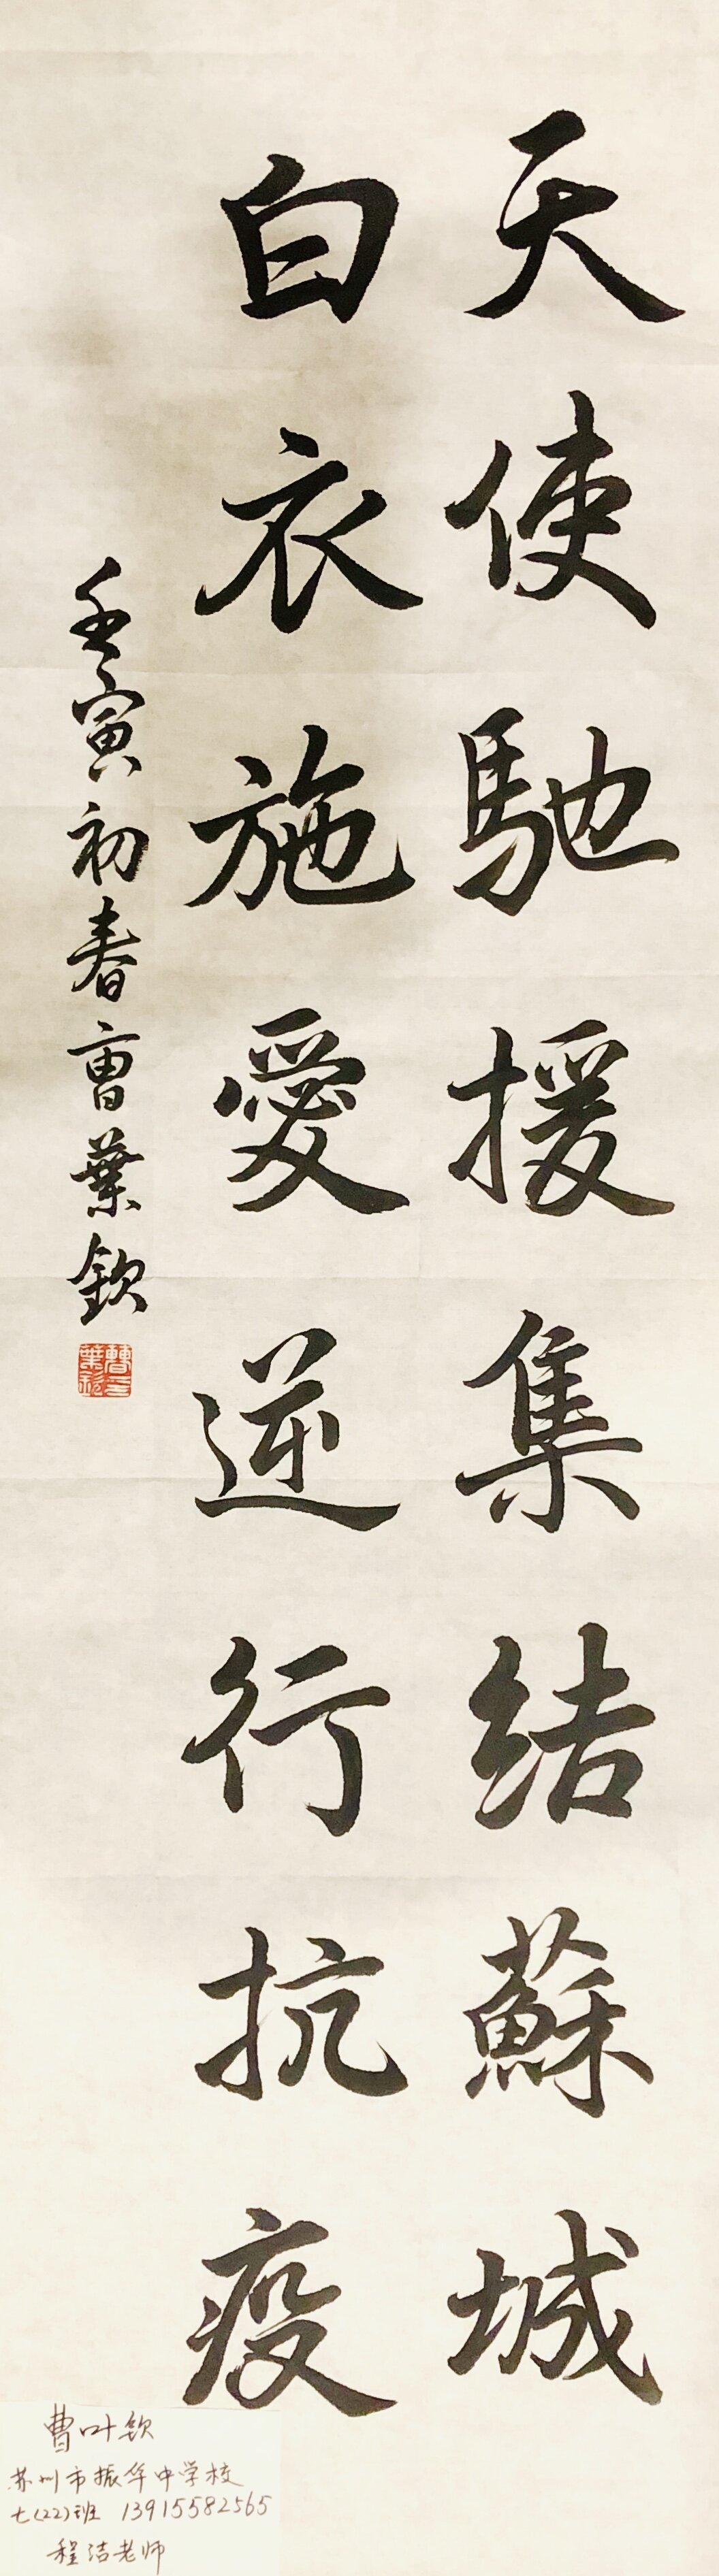 天使馳援集结蘇城
白衣施愛逆行抗疫
壬寅初春曹葉欽
曹葉欽印
曹叶钦
苏州市振华中学校
七(22)班 13915582565
程洁老师